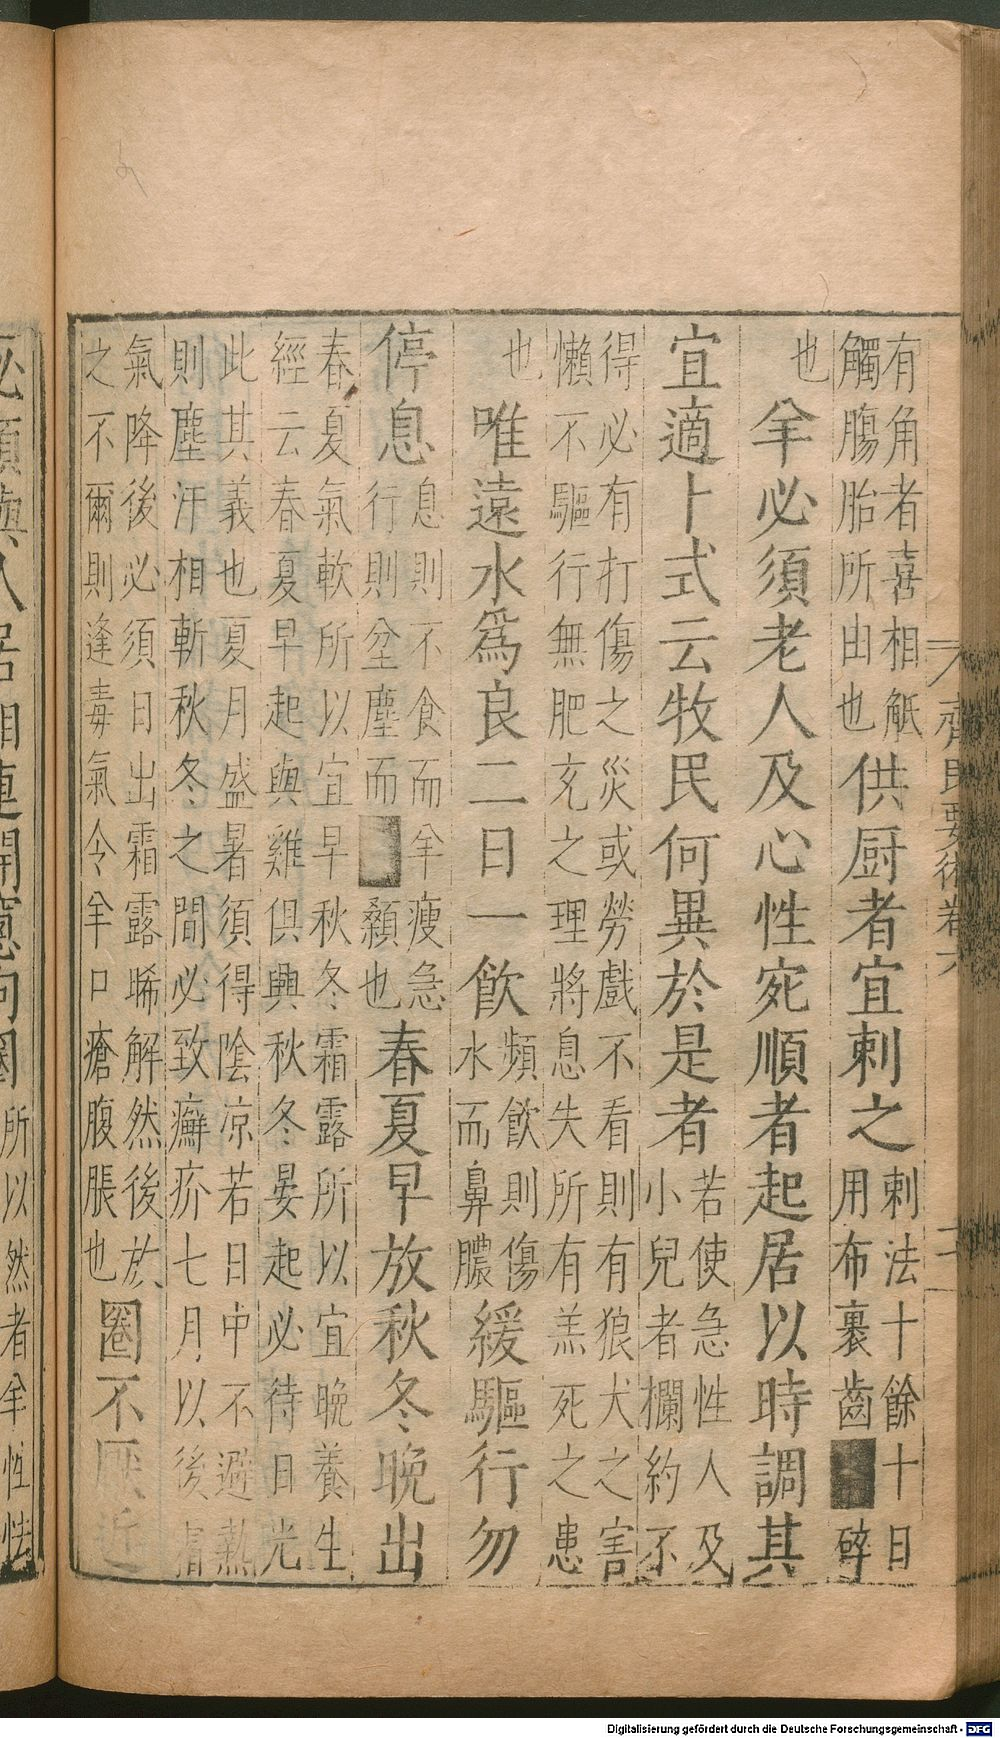 有角者喜相觝
觸膓胎所由也供厨者宜剌之剌法十餘十日
用布裹齒■碎
也 羊必須老人及心性宛順者起居以時調其
宜適卜式云牧民何異於是者若使急性人及
小兒者欄約不
得必有打傷之災或勞戲不看則有狼犬之害
懶不驅行無肥充之理將息失所有羔死之患
也 唯遠水爲良二日一飲頻飲則傷
水而鼻膿緩驅行勿
停息息則不食而羊瘦急
行則坌塵而■顙也春夏早放秋冬晚出
春夏氣軟所以宜早秋冬霜露所以宜晚養生
經云春夏早起與雞俱興秋冬晏起必待日光
此其義也夏月盛暑須得陰凉若日中不避熱
則塵汗相漸秋冬之間必致癬疥七月以後霜
氣降後必須日出霜露晞解然後放
之不爾則逢毒氣令羊口瘡腹脹也圈不厭近
齊民要術卷六
必須與人居相連開窓向圈所以然者羊性怯
Digitalisierung gefördert durch die Deutsche Forschungsgemeinschaft - DFG